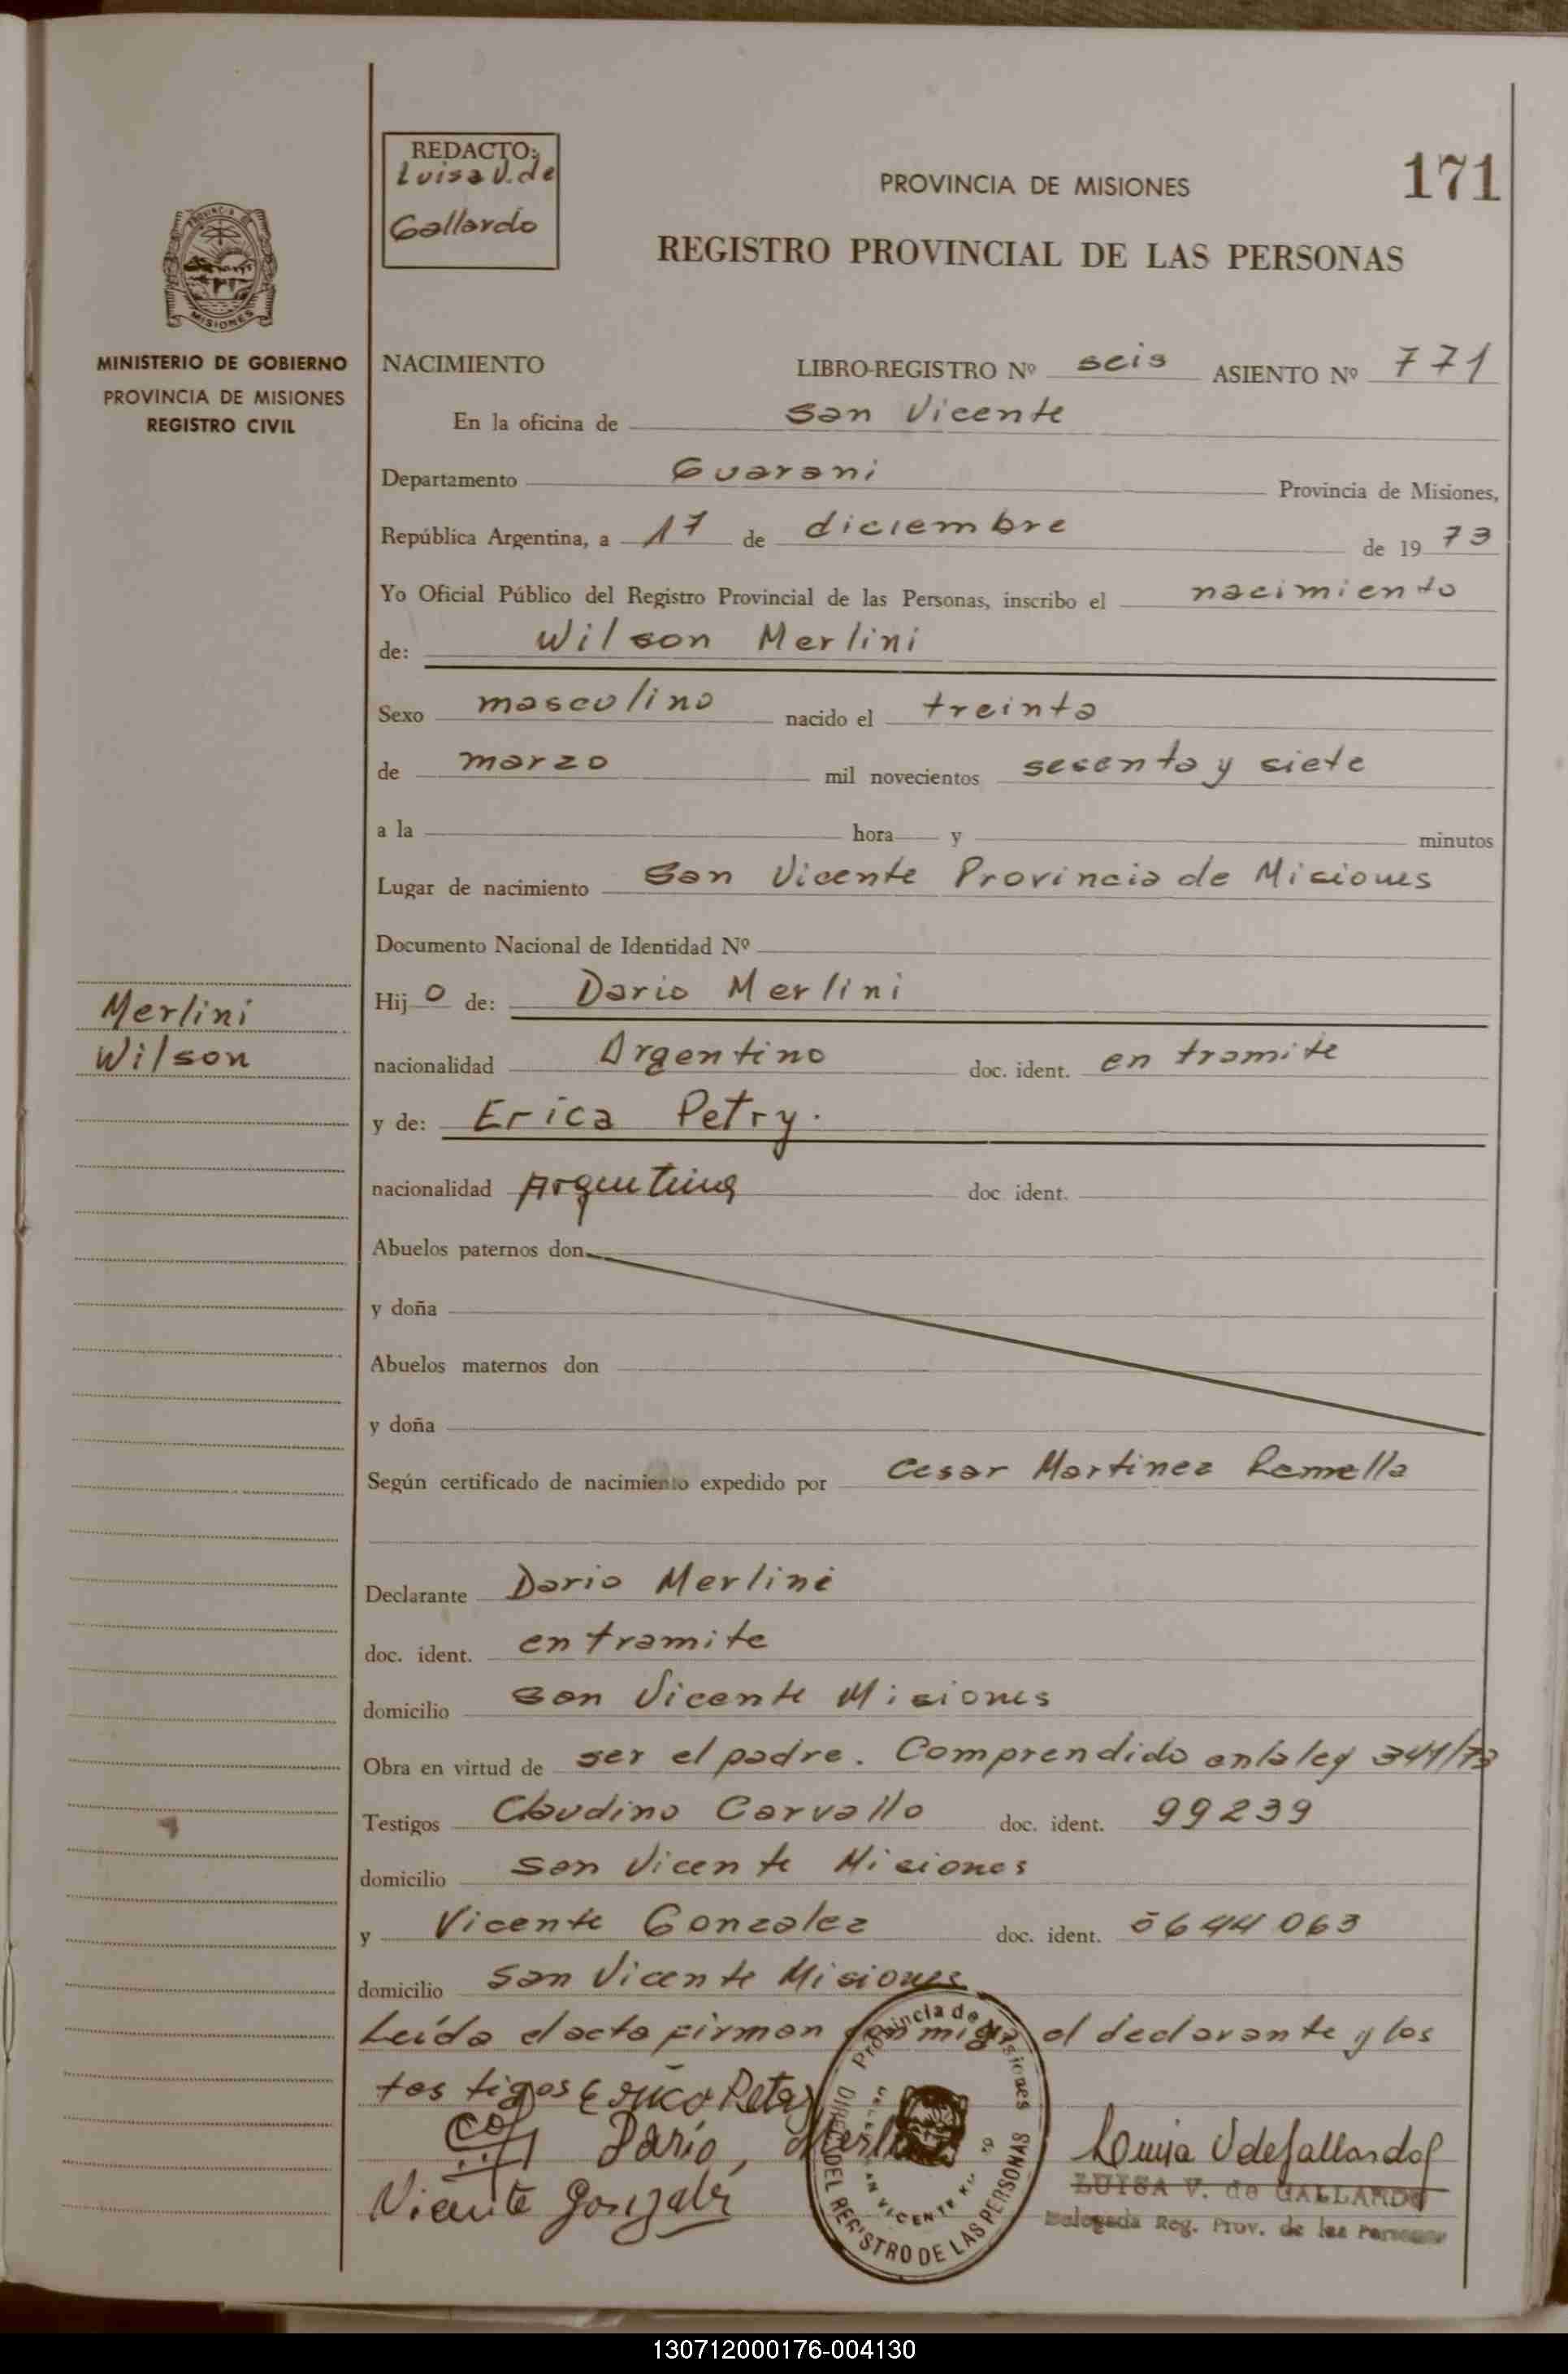 REDACTO:
Luisa V. de
Gallardo
PROVINCIA DE MISIONES
171
REGISTRO PROVINCIAL DE LAS PERSONAS
MISIONES
MINISTERIO DE GOBIERNO
PROVINCIA DE MISIONES
REGISTRO CIVIL
NACIMIENTO LIBRO-REGISTRO Nº seis ASIENTO Nº 771
En la oficina de San Vicente
Departamento Guarani Provincia de Misiones,
República Argentina, a 17 de diciembre de 1973
Yo Oficial Público del Registro Provincial de las Personas, inscribo el nacimiento
de: Wilson Merlini
Sexo masculino nacido el treinta
de marzo mil novecientos sesenta y siete
a la hora y minutos
Lugar de nacimiento San Vicente Provincia de Misiones
Documento Nacional de Identidad Nº
Merlini
Wilson
Hijo de: Dario Merlini
nacionalidad Argentino doc. ident. en tramite
y de: Erica Petry.
nacionalidad Argentina doc ident.
Abuelos paternos don
y doña
Abuelos maternos don
y doña
Según certificado de nacimiento expedido por Cesar Martinez
Declarante Dario Merlini
doc. ident. en tramite
domicilio San Vicente Misiones
Obra en virtud de ser el padre. Comprendido en la ley
Testigos Claudino Carvallo doc. ident. 99239
domicilio San Vicente Misiones
y Vicente Gonzalez doc. ident. 5644063
domicilio San Vicente Misiones
Leída el acta firman conmigo el declarante y los
testigos
Dario Merlini
Vicente Gonzalez
Provincia de Misiones
DIREC. DEL REGISTRO DE LAS PERSONAS
Luisa V de Gallardo
LUISA V. de GALLARDO
Delegada Reg. Prov. de las Personas
130712000176-004130